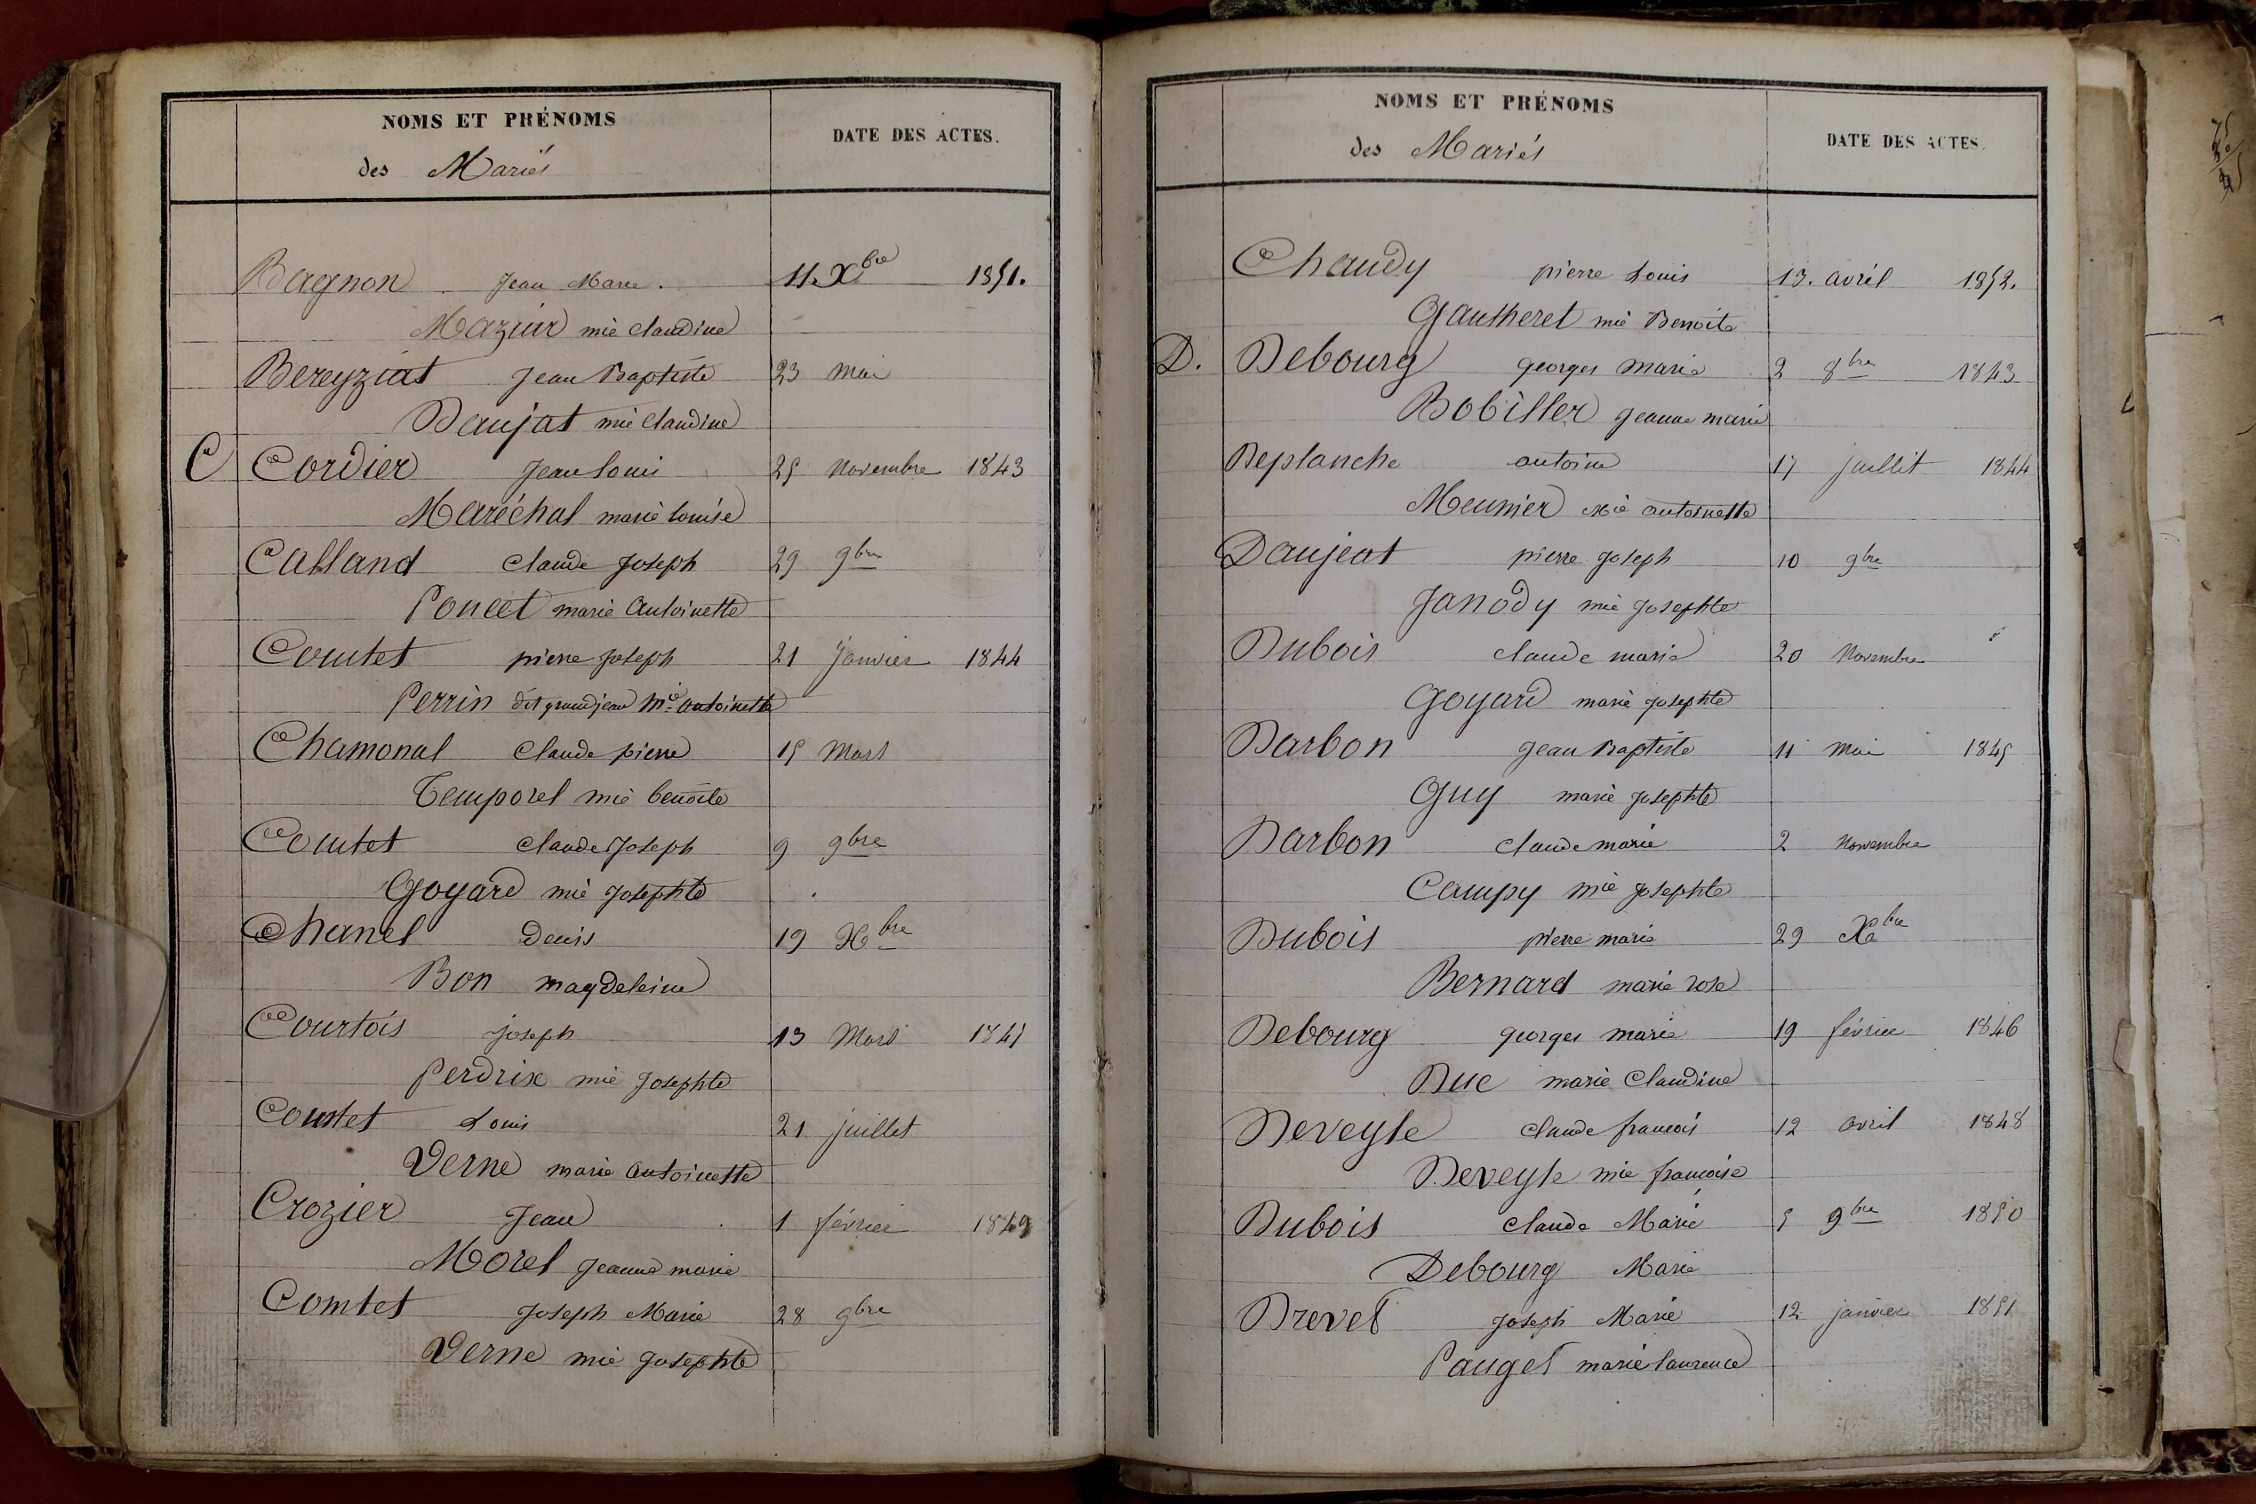 NOMS ET PRÉNOMS
des Mariés
DATE DES ACTES.
Bagnon Jean Marie. 11. Xbre 1851.
Mazuir mie Claudine
Bereyziat Jean Baptiste 23 Mai
Daujat mie Claudine
C Cordier Jean Louis 25 Novembre 1843
Maréchal marie Louise
Calland Claude Joseph 29 9bre
Poncet marie Antoinette
Comtet pierre Joseph 21 Janvier 1844
Perrin dit grandjean Mie Antoinette
Chamonal Claude pierre 15 Mars
Temporel mie benoite
Comtet Claude Joseph 9 9bre
Goyard mie Josephte
Chanel Denis 19 Xbre
Bon magdeleine
Courtois Joseph 13 Mars 1845
Perdrix mie Josephte
Comtet Louis 21 juillet
Verne marie Antoinette
Crozier Jean 1 février 1849
Morel Jeanne marie
Comtet Joseph Marie 28 9bre
Verne mie Josephte
NOMS ET PRÉNOMS
des Mariés
DATE DES ACTES.
Chaudy pierre Louis 13. avril 1852.
Gautheret mie Benoite
D. Debourg georges marie 2 8bre 1843
Bobiller jeanne marie
Deplanche antoine 17 juillet 1844
Meunier Mie antoinette
Daujeat pierre joseph 10 9bre
Janody mie josephte
Dubois claude marie 20 Novembre
Goyard marie josephte
Darbon jean Baptiste 11 Mai 1845
Guy marie josephte
Darbon claude marie 2 Novembre
Campy mie josephte
Dubois pierre marie 29 Xbre
Bernard marie rose
Debourg georges marie 19 février 1846
Duc marie Claudine
Deveyle claude francois 12 avril 1848
Deveyle mie francoise
Dubois claude Marie 5 9bre 1850
Debourg Marie
Drevet joseph Marie 12 janvier 1851
Pauget marie laurence